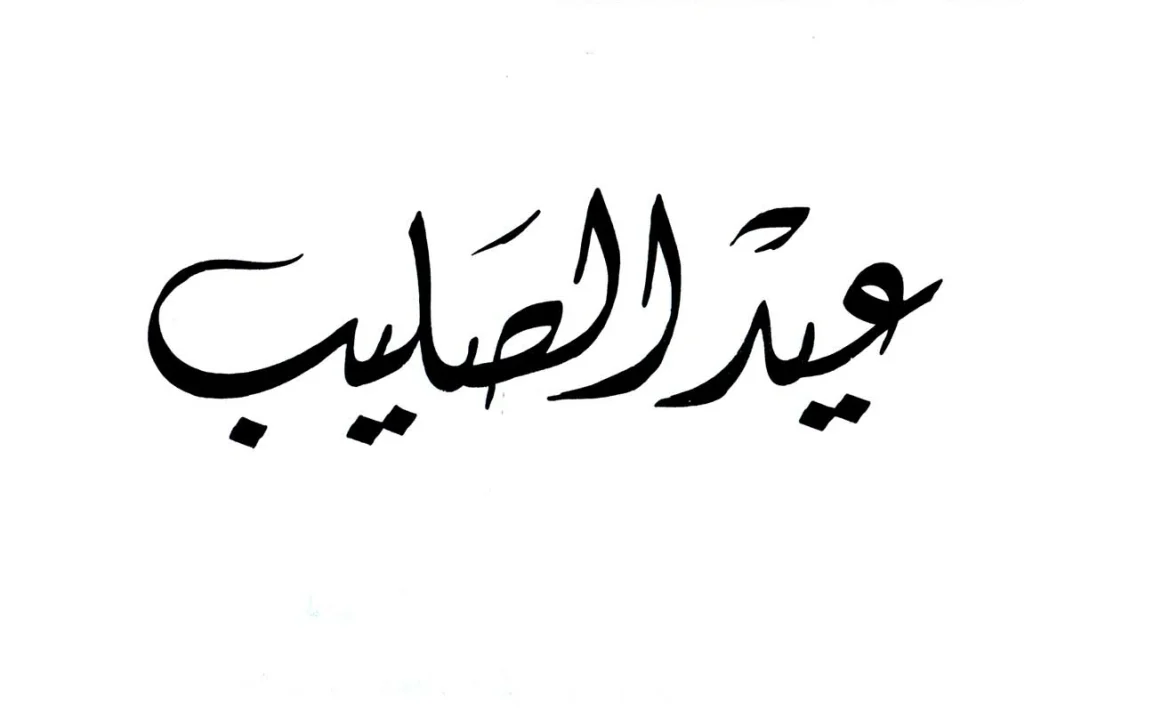 عيد الصليب